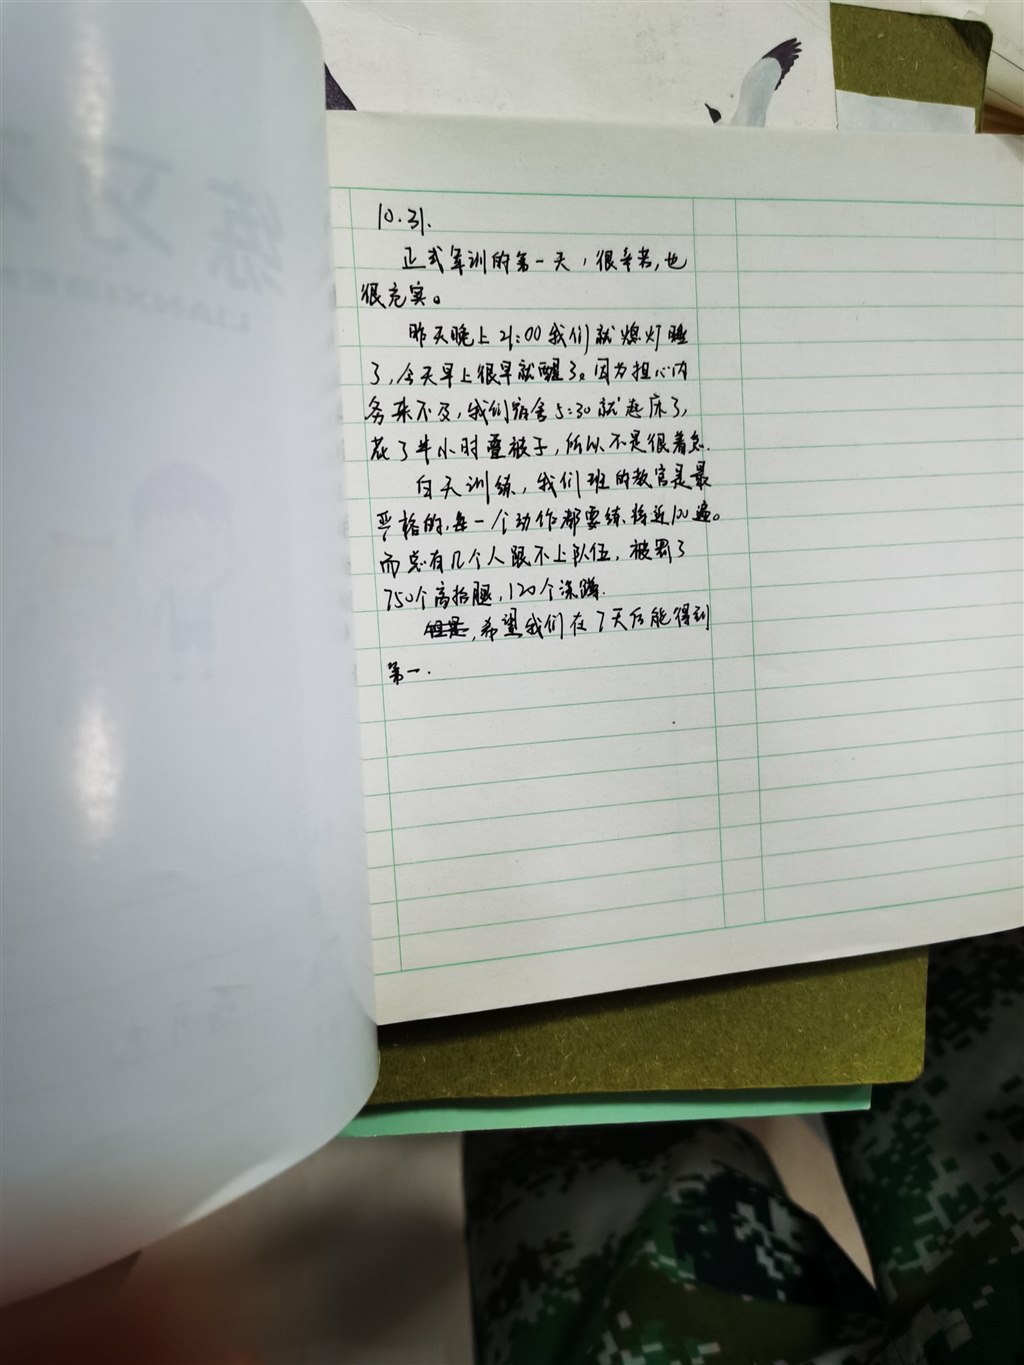 练习
LIANXIBEN
10.31.
正式军训的第一天，很辛苦，也
很充实。
昨天晚上21:00我们就熄灯睡
了，今天早上很早就醒了。因为担心内
务来不及，我们宿舍5:30就起床了，
花了半小时叠被子，所以不是很着急.
白天训练，我们班的教官是最
严格的，每一个动作都要练将近100遍。
而总有几个人跟不上队伍，被罚了
750个高抬腿，120个深蹲.
但是，希望我们在7天后能得到
第一.